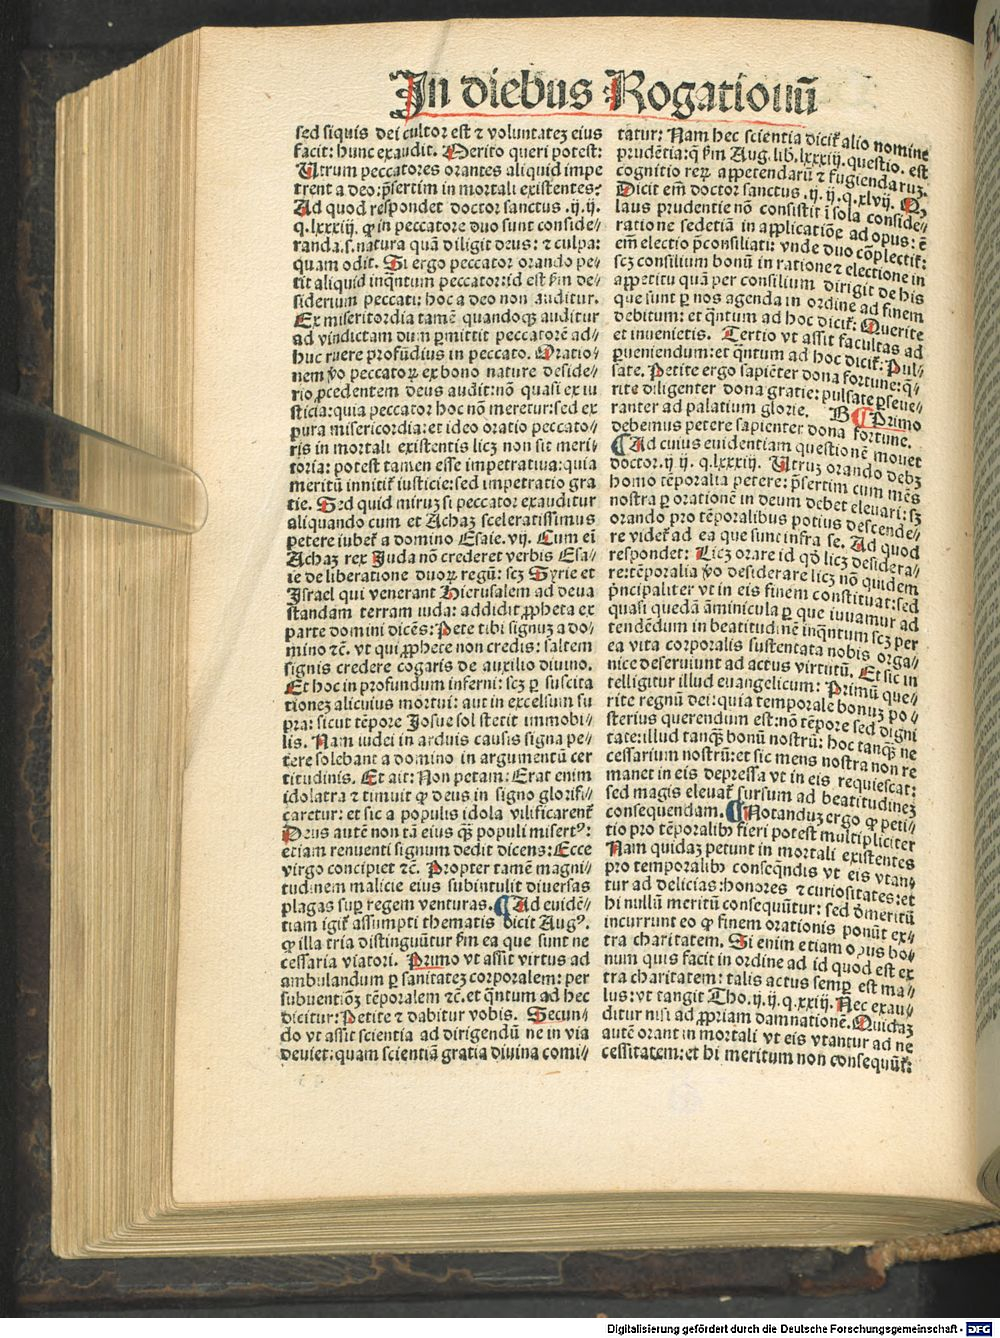 In diebus Rogationū
sed siquis dei cultor est ⁊ voluntateꝫ eius
facit: hunc exaudit. Merito queri potest:
Utrum peccatores orantes aliquid impe
trent a deo: p̄sertim in mortali existentes?
Ad quod respondet doctor sanctus .ij. ij.
q. lxxxiij. ꝙ in peccatore duo sunt conside⸗
randa. s. natura quā diligit deus: ⁊ culpa:
quam odit. Si ergo peccator orando pe⸗
tit aliquid inq̄ntum peccator: id est ẜm de⸗
siderium peccati: hoc a deo non auditur.
Ex misericordia tamē quandoqꝫ auditur
ad vindictam dum ꝑmittit peccatorē ad⸗
huc ruere profūdius in peccato. Oratio⸗
nem ṽo peccatoꝝ ex bono nature deside⸗
rio ꝓcedentem deus audit: nō quasi ex iu
sticia: quia peccator hoc nō meretur: sed ex
pura misericordia: et ideo oratio peccato⸗
ris in mortali existentis licꝫ non sit meri⸗
toria: potest tamen esse impetratiua: quia
meritū innitit᷑ iusticie: sed impetratio gra
tie. Sed quid miruꝫ si peccator exauditur
aliquando cum et Achaꝫ sceleratissimus
petere iubet᷑ a domino Esaie. vij. Cum eī
Achaꝫ rex Juda nō crederet verbis Esa⸗
ie de liberatione duoꝝ regū: scꝫ Syrie et
Israel qui venerant Hierusalem ad deua
standam terram iuda: addidit ꝓpheta ex
parte domini dicēs: Pete tibi signuꝫ a do⸗
mino ⁊c̄. vt qui ꝓphete non credis: saltem
signis credere cogaris de auxilio diuino.
Et hoc in profundum inferni: scꝫ ꝑ suscita
tioneꝫ alicuius mortui: aut in excelsum su
pra: sicut tēpore Josue sol stetit immobi⸗
lis. Nam iudei in arduis causis signa pe⸗
tere solebant a domino in argumentū cer
titudinis. Et ait: Non petam: Erat enim
idolatra ⁊ timuit ꝙ deus in signo glorifi⸗
caretur: et sic a populis idola vilificarent᷑
Deus autē non tā eius qꝫ̄ populi misertꝰ:
etiam renuenti signum dedit dicens: Ecce
virgo concipiet ⁊c̄. Propter tamē magni⸗
tudinem malicie eius subintulit diuersas
plagas suꝑ regem venturas. ¶ Ad euidē⸗
tiam igit᷑ assumpti thematis dicit Augꝰ.
ꝙ illa tria distinguūtur ẜm ea que sunt ne
cessaria viatori. Primo vt assit virtus ad
ambulandum ꝑ sanitateꝫ corporalem: per
subuentiōꝫ tēporalem ⁊c̄. et q̄ntum ad hec
dicitur: Petite ⁊ dabitur vobis. Secun⸗
do vt assit scientia ad dirigendū ne in via
deuiet: quam scientiā gratia diuina comi⸗
tatur: Nam hec scientia dicit᷑ alio nomine
prudētia: q̄ ẜm Aug. lib. lxxxiij. questio. est
cognitio reꝝ appetendarū ⁊ fugiendaruꝫ.
Dicit em̄ doctor sanctus .ij. ij. q. xlvij. Q,
laus prudentie nō consistit ī sola conside⸗
ratione sed etiā in applicatiōe ad opus: ē
em̄ electio p̄consiliati: vnde duo cōplectit᷑:
scꝫ consilium bonū in ratione ⁊ electione in
appetitu quā per consilium dirigit de his
que sunt ꝑ nos agenda in ordine ad finem
debitum: et q̄ntum ad hoc dicit᷑: Querite
et inuenietis. Tertio vt assit facultas ad
ꝑueniendum: et q̄ntum ad hoc dicit᷑: Pul⸗
sate. Petite ergo sapiēter dona fortune: q̄⸗
rite diligenter dona gratie: pulsate ꝑseue⸗
ranter ad palatium glorie. B ¶ Primo
debemus petere sapienter dona fortune.
¶ Ad cuius euidentiam questionē mouet
doctor. ij ij. q. lxxxiij. Utruꝫ orando debꝫ
homo tēporalia petere: p̄sertim cum mēs
nostra ꝑ orationē in deum debet eleuari: sꝫ
orando pro tēporalibus potius descende⸗
re videt᷑ ad ea que sunt infra se. Ad quod
respondet: Licꝫ orare id qd̄ licꝫ desidera⸗
re: tēporalia ṽo desiderare licꝫ nō quidem
p̄ncipaliter vt in eis finem constituat: sed
quasi quedā āminicula ꝑ que iuuamur ad
tendēdum in beatitudinē inq̄ntum scꝫ per
ea vita corporalis sustentata nobis orga⸗
nice deseruiunt ad actus virtutū. Et sic in
telligitur illud euangelicum: Primū que⸗
rite regnū dei: quia temporale bonuꝫ po⸗
sterius querendum est: nō tēpore sed digni
tate: illud tanqꝫ̄ bonū nostrū: hoc tanqꝫ̄ ne
cessarium nostrū: et sic mens nostra non re
manet in eis depressa vt in eis requiescat:
sed magis eleuat᷑ sursum ad beatitudineꝫ
consequendam. ¶ Notanduꝫ ergo ꝙ peti⸗
tio pro tēporalibꝰ fieri potest multipliciter
Nam quidaꝫ petunt in mortali existentes
pro temporalibꝰ conseq̄ndis vt eis vtan⸗
tur ad delicias: honores ⁊ curiositates: et
hi nullū meritū consequūtur: sed d̄meritū
incurrunt eo ꝙ finem orationis ponūt ex⸗
tra charitatem. Si enim etiam opus bo⸗
num quis facit in ordine ad id quod est ex
tra charitatem: talis actus semꝑ est ma⸗
lus: vt tangit Tho. ij. ij. q. xxiij. Nec exau⸗
ditur nisi ad ꝓpriam damnationē. Quidaꝫ
autē orant in mortali vt eis vtantur ad ne
cessitatem: et hi meritum non consequūt᷑:
Digitalisierung gefördert durch die Deutsche Forschungsgemeinschaft - DFG